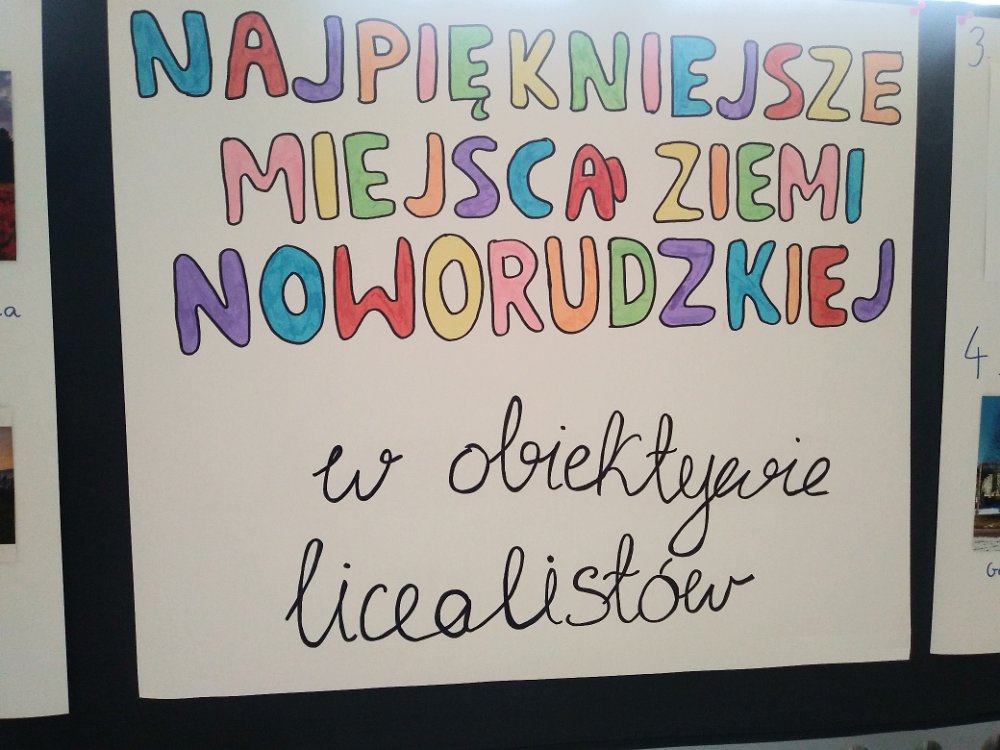 NAJPIĘKNIEJSZE
MIEJSCA ZIEMI
NOWORUDZKIEJ
w obiektywie
licealistów
3
4